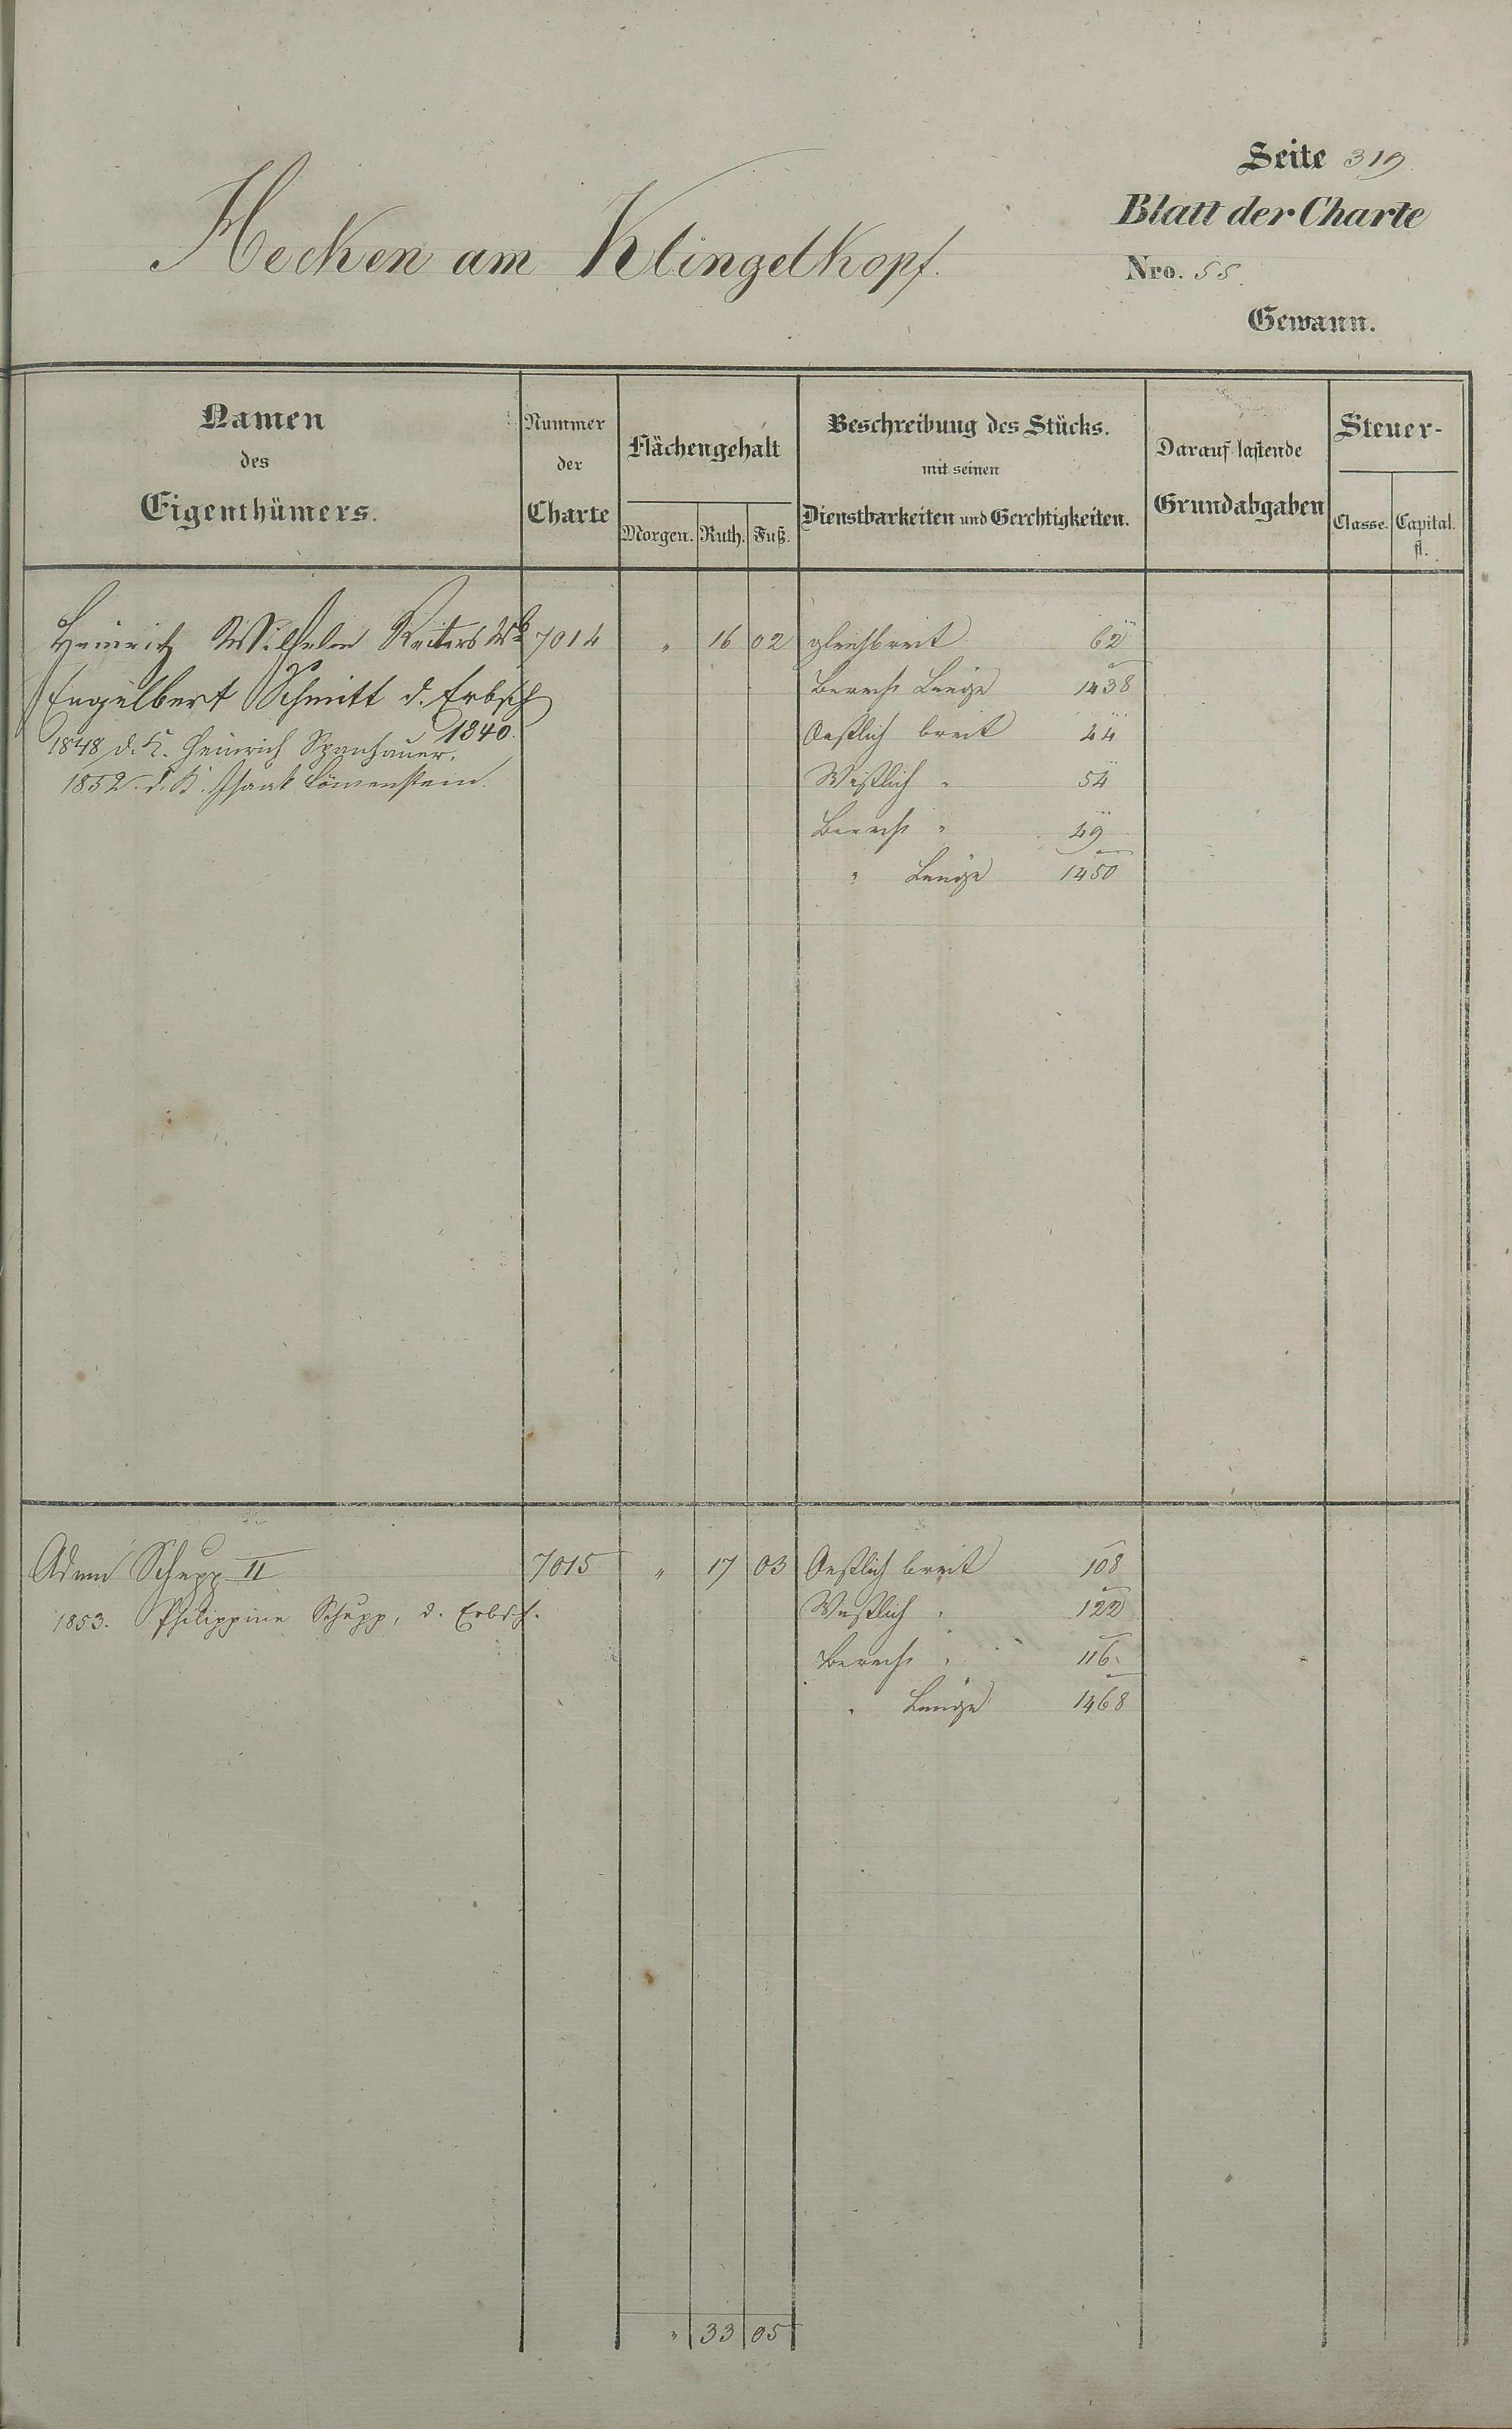 Seite 319.
Blatt der Charte
Hecken am Klingelkopf.
Nro. 55.
Gewann.
Namen
des
Eigenthümers.
Nummer
der
Charte
Flächengehalt
Morgen. Ruth. Fuß.
Beschreibung des Stücks.
mit seinen
Dienstbarkeiten und Gerechtigkeiten.
Darauf lastende
Grundabgaben
Steuer-
Classe. Capital.
fl.
Heinrich Wilhelm Reiters Wb 7014 " 16 02 gleichbreit 62
Engelbert Schmitt d. Erbsch Berech Länge 1438
1840. Oestlich breit 44
1848 d. K. Heinrich Spanhauer.
1852. d. K. Isaak Löwenstein. Westlich " 54
Berech " 49
" Länge 1450
Adam Schupp II 7015 " 17 03 Oestlich breit 108
1853. Philippine Schupp, d. Erbsch. Westlich " 122
Berech " 116.
" Länge 1468
" 33 05